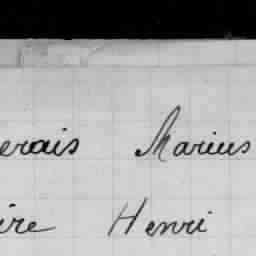 erais Marius
ire Henri